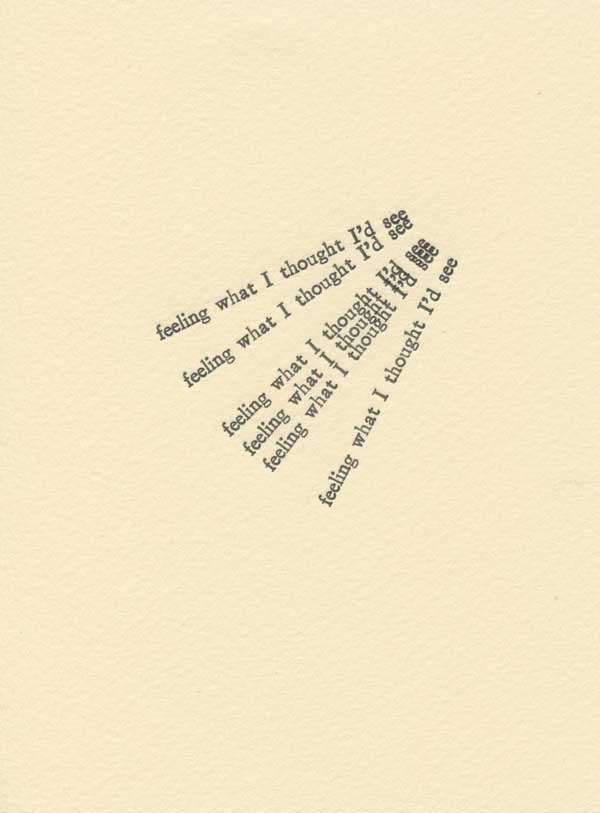 feeling what I thought I'd see
feeling what I thought I'd see
feeling what I thought I'd see
feeling what I thought I'd see
feeling what I thought I'd see
feeling what I thought I'd see